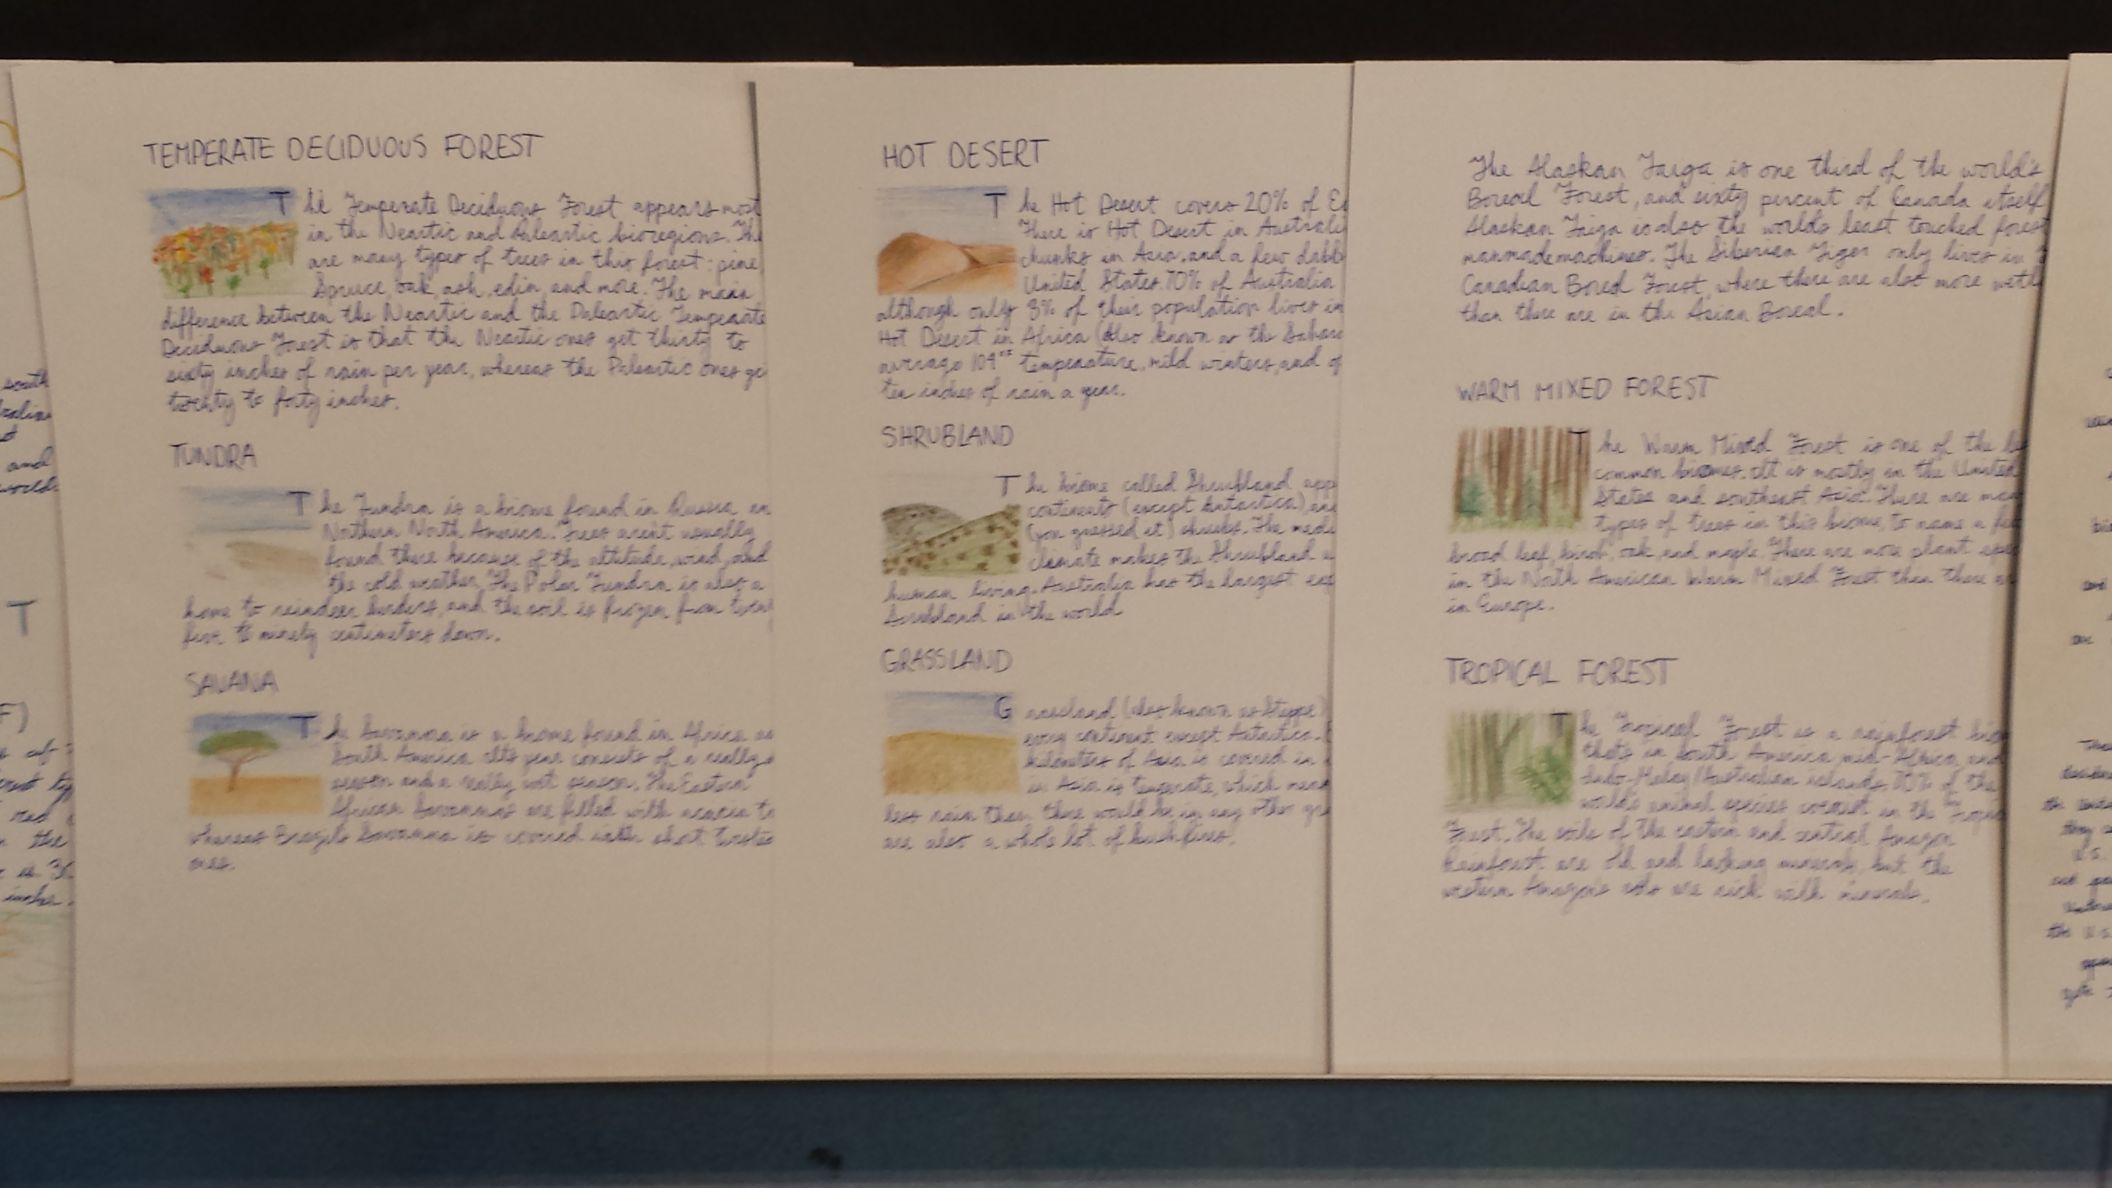 TEMPERATE DECIDUOUS FOREST
The Temperate Deciduous Forest appears most
in the Neartic and Paleartic bioregions. The
are many types of trees in this forest: pine,
Spruce, oak, ash, edin, and more. The main
difference between the Neartic and the Paleartic Temperate
Deciduous Forest is that the Neartic ones get thirty to
sixty inches of rain per year, whereas the Paleartic ones ge
twenty to forty inches.
TUNDRA
The Tundra is a biome found in Russia an
Nothern North America. Trees aren't usually
found there because of the altitude, wind, and
the cold weather. The Polar Tundra is also a
home to reindeer herders, and the soil is frozen from twent
five to ninety centimeters down.
SAVANA
The Savanna is a biome found in Africa an
South America. Its year consists of a really
season and a really wet season. The Eastern
African Savannas are filled with acacia tr
whereas Brazil's Savanna is covered with short twisted
ones.
HOT DESERT
The Hot Desert covers 20% of Ea
There is Hot Desert in Australi
chunks in Asia, and a few dabbl
United States. 70% of Australia
although only 3% of their population lives in
Hot Desert in Africa (also known as the Sahara
average 109° temperature, mild winters, and
ten inches of rain a year.
SHRUBLAND
The biome called Shrubland app
continents (except Antarctica), and
(you guessed it) shrubs. The medi
climate makes the Shrubland
human living. Australia has the largest
Shrubland in the world
GRASSLAND
Grassland (also known as Steppe)
every continent except Antartica.
kilometers of Asia is covered in
in Asia is temperate, which mean
less rain than there would be in any other gra
are also a whole lot of bushfires.
The Alaskan Taiga is one third of the world's
Boreal Forest, and sixty percent of Canada itself
Alaskan Taiga is also the worlds least touched forest
manmade machines. The Siberian Tiger only lives in
Canadian Boreal Forest, where there are also more wetl
than there are in the Asian Boreal.
WARM MIXED FOREST
The Warm Mixed Forest is one of the le
common biomes. It is mostly in the United
States and southeast Asia. There are man
types of trees in this biome, to name a few
broad leaf, birch, oak, and maple. There are more plant spec
in the North American Warm Mixed Forest then there ar
in Europe.
TROPICAL FOREST
The Tropical Forest is a rainforest bio
thats in South America, mid-Africa, and
Indo-Malay/Australian islands. 70% of the
world's animal species coexist in the Tropic
Forest. The soils of the eastern and central Amazon
Rainforest are old and lacking minerals, but the
western Amazon's soils are rich with minerals.